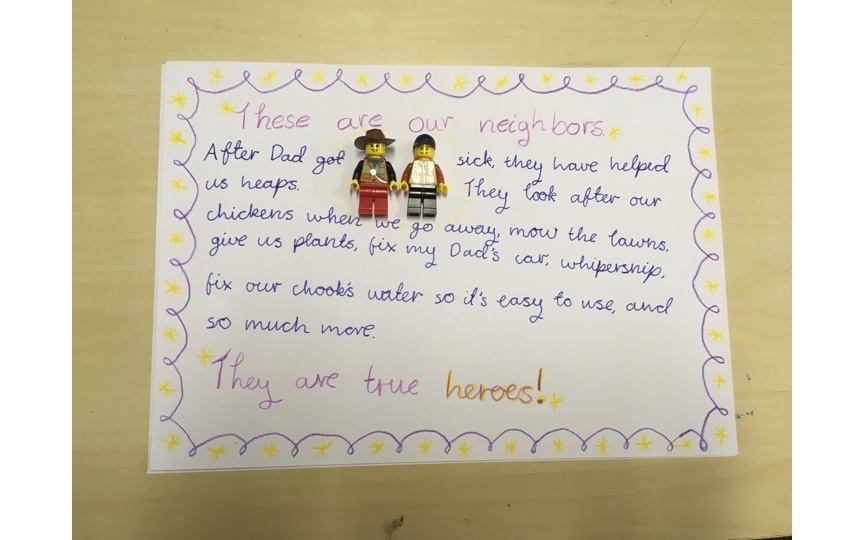 These are our neighbors.
After Dad got sick, they have helped
us heaps. They look after our
chickens when we go away, mow the lawns,
give us plants, fix my Dad's car, whipersnip,
fix our chook's water so it's easy to use, and
so much more.
They are true heroes!